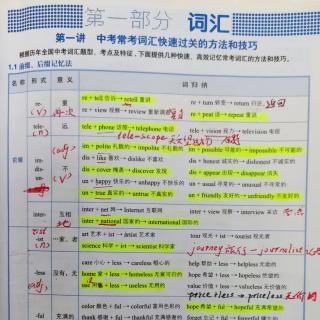 第一部分 词汇
第一讲 中考常考词汇快速过关的方法和技巧
根据历年全国中考词汇题型、考点及特征,下面提供几种快速、高效记忆常考词汇的方法和技巧。
1.1 前缀、后缀记忆法
名称 形式 意义 词归纳
re- 重 re + tell 告诉→retell 重讲 re + turn 转变→return 归还
(v) 再次 re + view 视察→review 重新调查 re + peat 说→repeat 重说
tele- 远 tele + phone 话筒→telephone 电话 tele + vision 视力→television 电视
tele-scope
前缀 im- im + polite 礼貌的→impolite 不礼貌的 im + possible 可能的→impossible 不可能的
(adj)
dis- 不 dis + like 喜欢→dislike 不喜欢 dis + honest 诚实的→dishonest 不诚实的
(v) dis + cover 掩盖→discover 发现 dis + appear 出现→disappear 消失
un- un + happy 快乐的→unhappy 不快乐的 un + usual 寻常的→unusual 不寻常的
un + true 真实的→untrue 不真实的 un + friendly 友好的→unfriendly 不友好的
inter- 互相 inter + net 网→Internet 互联网 inter + view 观察→interview 采访
inter + national 国家的→international 国际的
-ist …家,者 art 艺术 + ist→artist 艺术家 tour 观光 + ist→tourist 观光者
science 科学 + ist→scientist 科学家 journey 旅行→journalist
-less 没有,无 care 小心 + less→careless 粗心的 help 帮助 + less→helpless 无助的
home 家 + less→homeless 无家可归的 hope 希望 + less→hopeless 绝望的
(adj) use 用途 + less→useless 无用的 value 价值 + less→valueless 无价值的
price + less→priceless
-ful 充满的 color 颜色 + ful→colorful 富有色彩的 hope 希望 + ful→hopeful 有希望的
thank 感谢 + ful→thankful